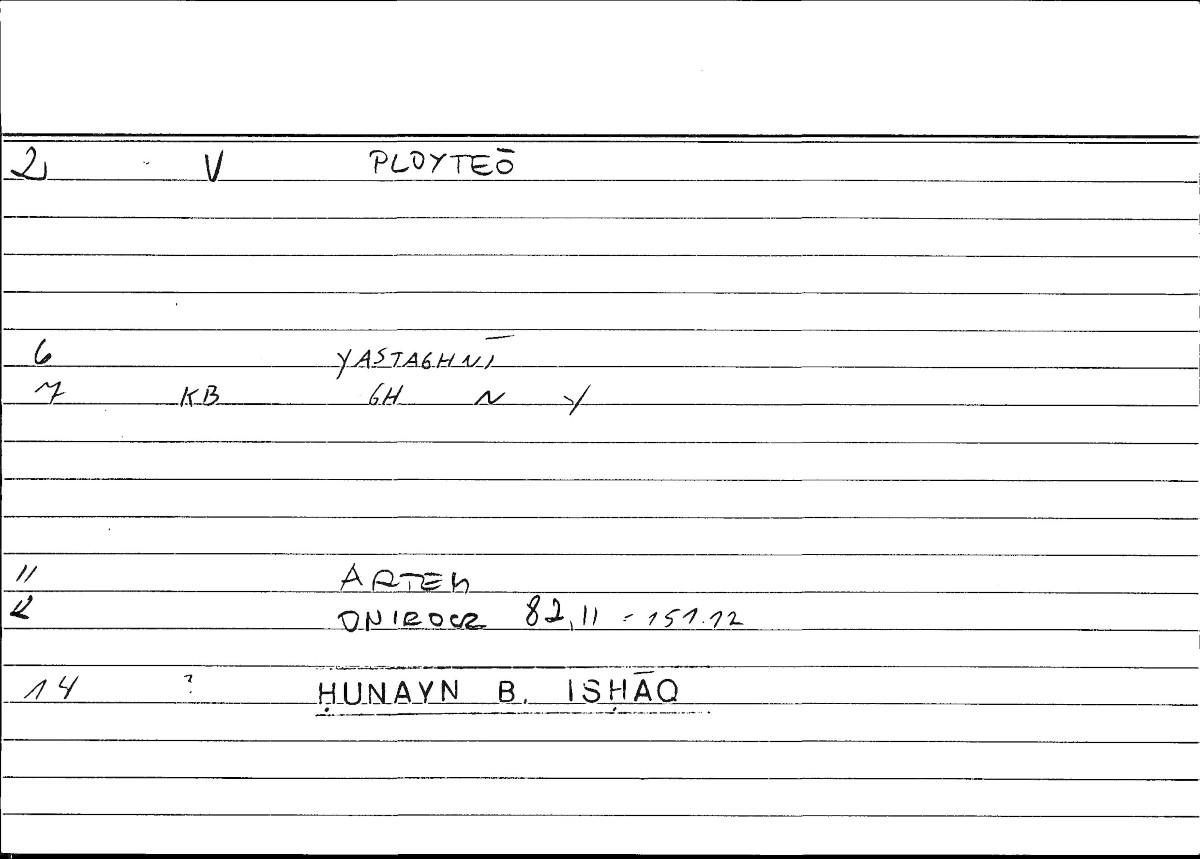 2 V PLOYTEŌ
6 YASTAGHNĪ
7 KB GH N Y
11 ARTEM
12 ONIROCR 82,11 = 151.12
14 ? ḤUNAYN B. ISḤĀQ